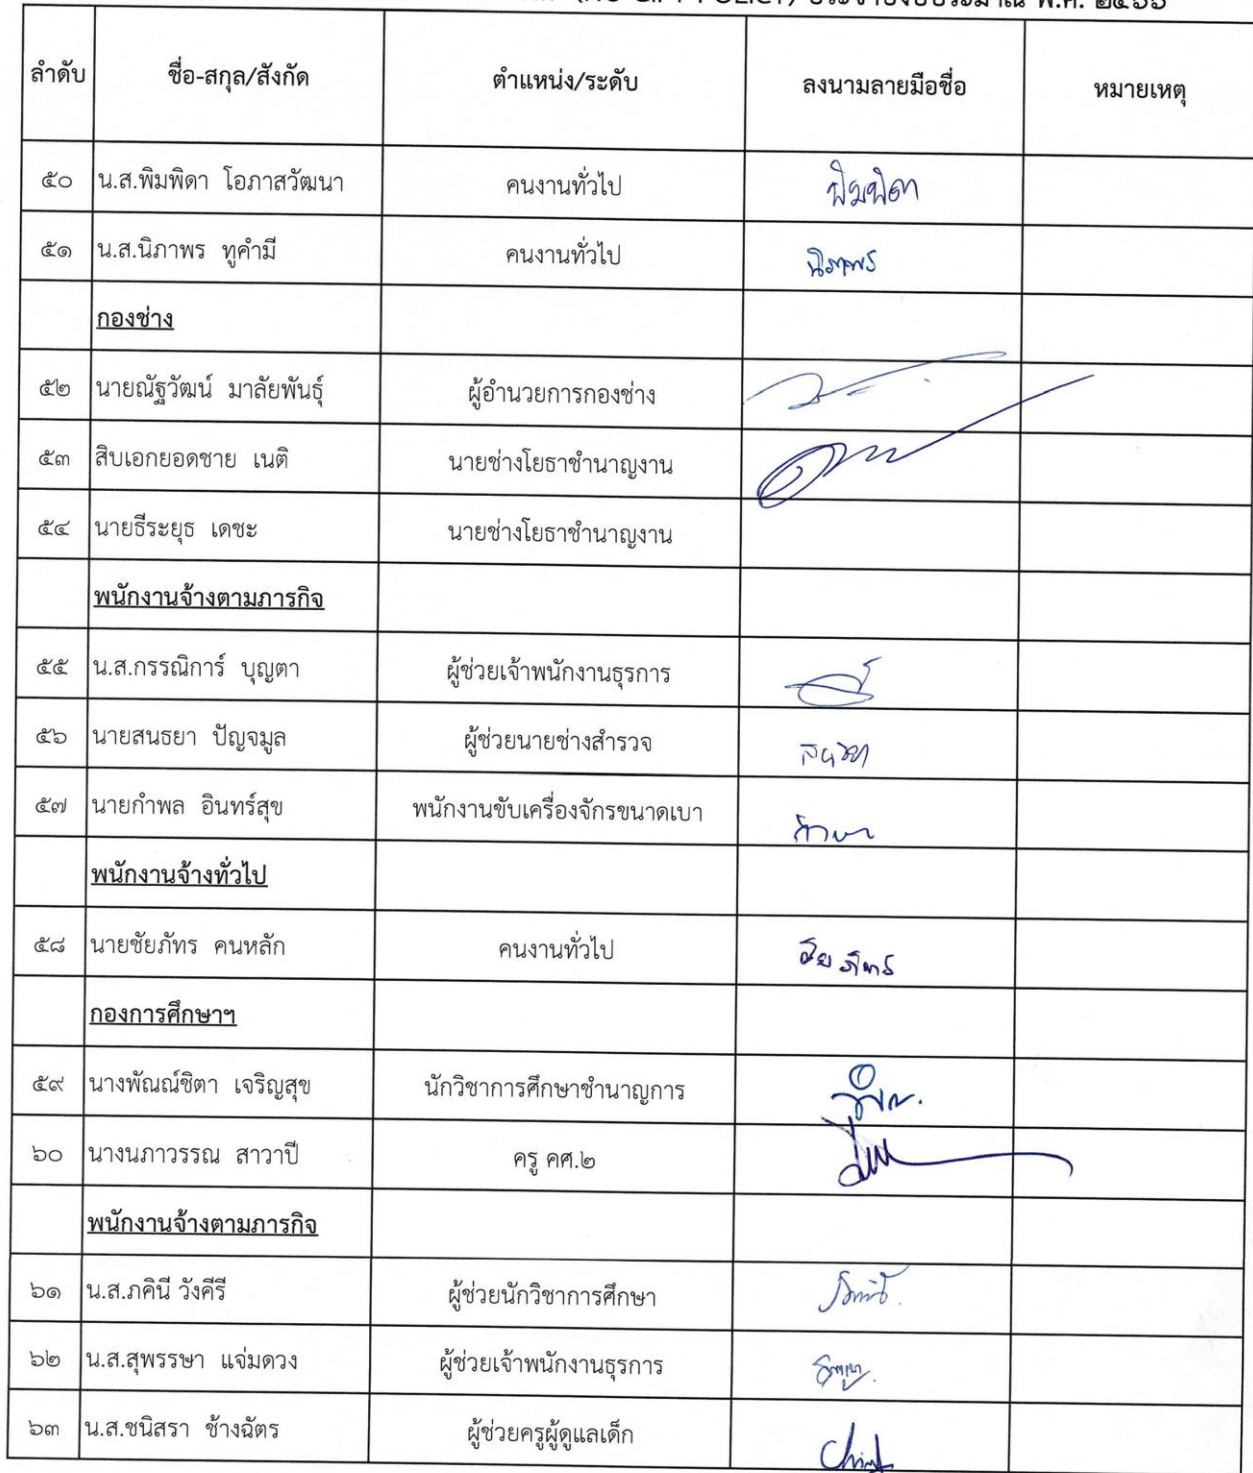 (NO GIFT POLICY) ประจำปีงบประมาณ พ.ศ. ๒๕๖๖
ลำดับ ชื่อ-สกุล/สังกัด ตำแหน่ง/ระดับ ลงนามลายมือชื่อ หมายเหตุ
๕๐ น.ส.พิมพิดา โอภาสวัฒนา คนงานทั่วไป พิมพิดา
๕๑ น.ส.นิภาพร ทูคำมี คนงานทั่วไป นิภาพร
กองช่าง
๕๒ นายณัฐวัฒน์ มาลัยพันธุ์ ผู้อำนวยการกองช่าง
๕๓ สิบเอกยอดชาย เนติ นายช่างโยธาชำนาญงาน
๕๔ นายธีระยุธ เดชะ นายช่างโยธาชำนาญงาน
พนักงานจ้างตามภารกิจ
๕๕ น.ส.กรรณิการ์ บุญตา ผู้ช่วยเจ้าพนักงานธุรการ
๕๖ นายสนธยา ปัญจมูล ผู้ช่วยนายช่างสำรวจ สนธยา
๕๗ นายกำพล อินทร์สุข พนักงานขับเครื่องจักรขนาดเบา
พนักงานจ้างทั่วไป
๕๘ นายชัยภัทร คนหลัก คนงานทั่วไป ชัยภัทร
กองการศึกษาฯ
๕๙ นางพัณณ์ชิตา เจริญสุข นักวิชาการศึกษาชำนาญการ
๖๐ นางนภาวรรณ สาวาปี ครู คศ.๒
พนักงานจ้างตามภารกิจ
๖๑ น.ส.ภคินี วังคีรี ผู้ช่วยนักวิชาการศึกษา
๖๒ น.ส.สุพรรษา แจ่มดวง ผู้ช่วยเจ้าพนักงานธุรการ
๖๓ น.ส.ชนิสรา ช้างฉัตร ผู้ช่วยครูผู้ดูแลเด็ก